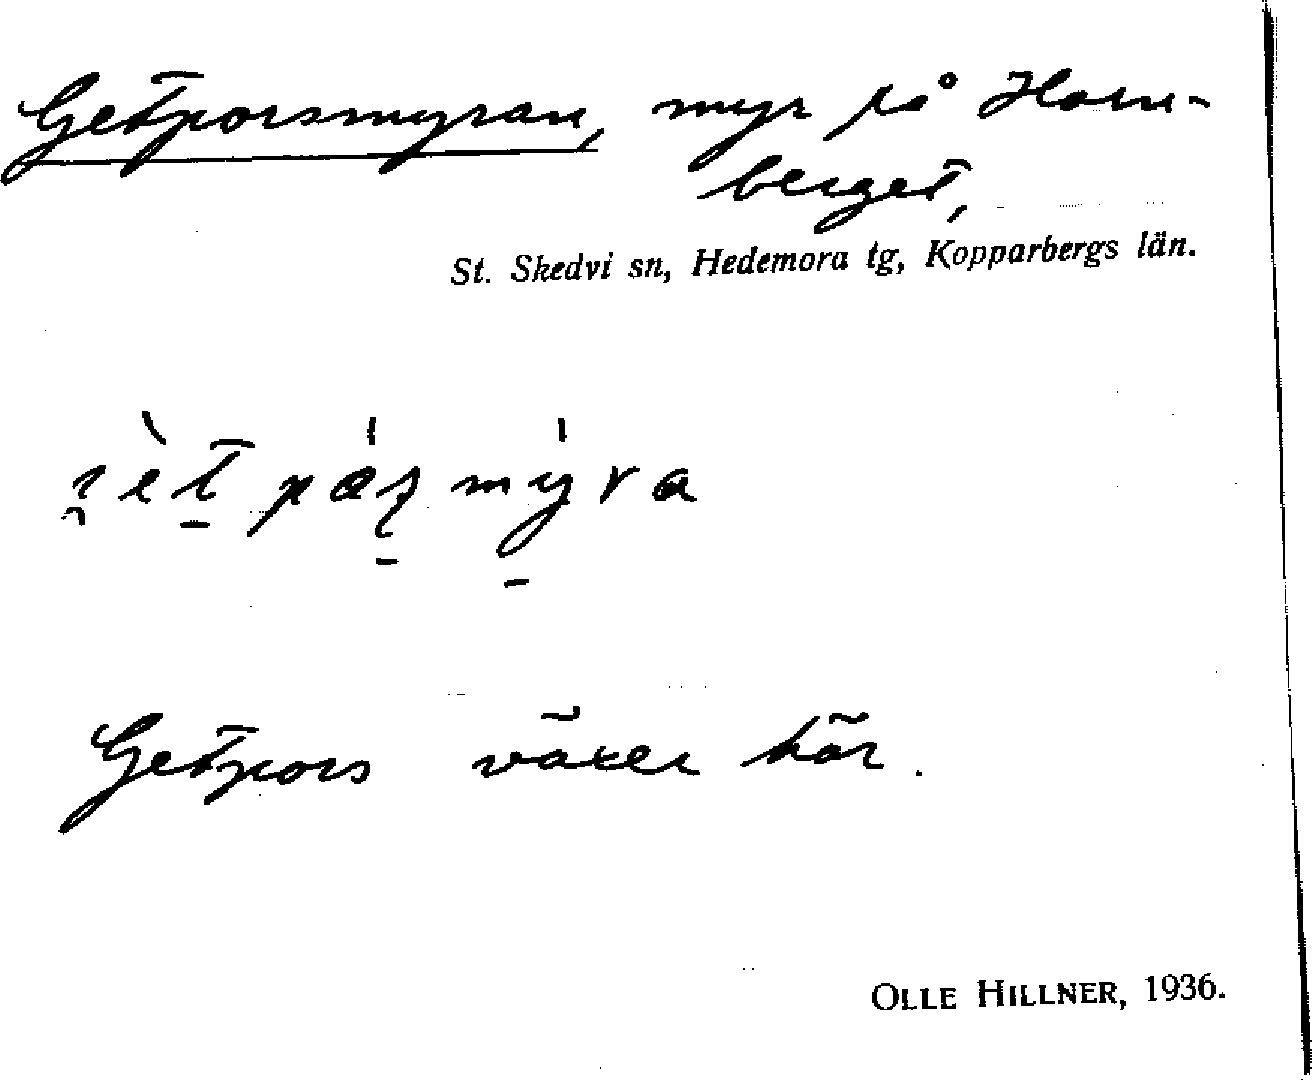 Getporsmyran, myr på Horn-
berget,
St. Skedvi sn, Hedemora tg, Kopparbergs län.
Getpors växer här.
OLLE HILLNER, 1936.